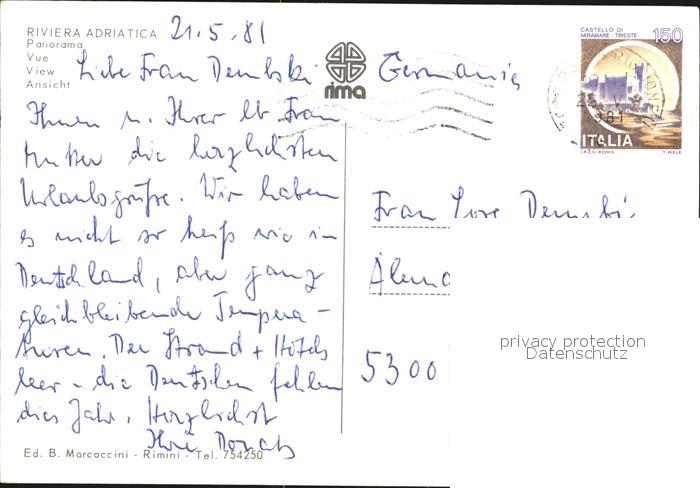 RIVIERA ADRIATICA
Panorama
Vue
View
Ansicht
21.5.81
Liebe Frau Dembski
Ihnen u. Ihrer lb. Frau
Mutter die herzlichsten
Urlaubsgrüße. Wir haben
es nicht so heiß wie in
Deutschland, aber ganz
gleichbleibende Tempera-
turen. Der Strand + Hotels
leer - die Deutschen fehlen
dies Jahr. Herzlichst
Ihre
Ed. B. Marcaccini - Rimini - Tel. 754250
rima
Germania
CASTELLO DI
MIRAMARE - TRIESTE
150
1981
ITALIA
I.P.Z.S.-ROMA T. MELE
Frau Dembski
5300
privacy protection
Datenschutz